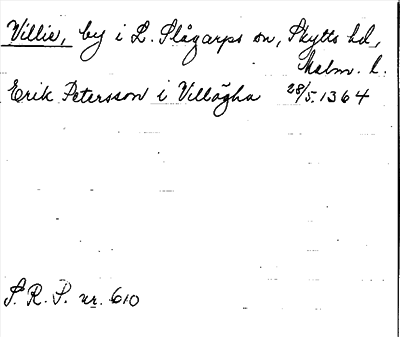 Villie, by i L. Slågarps sn, Skytts hd,
Malm. l.
Erik Petersson i Villögha 28/5.1364
S. R. P. nr. 610